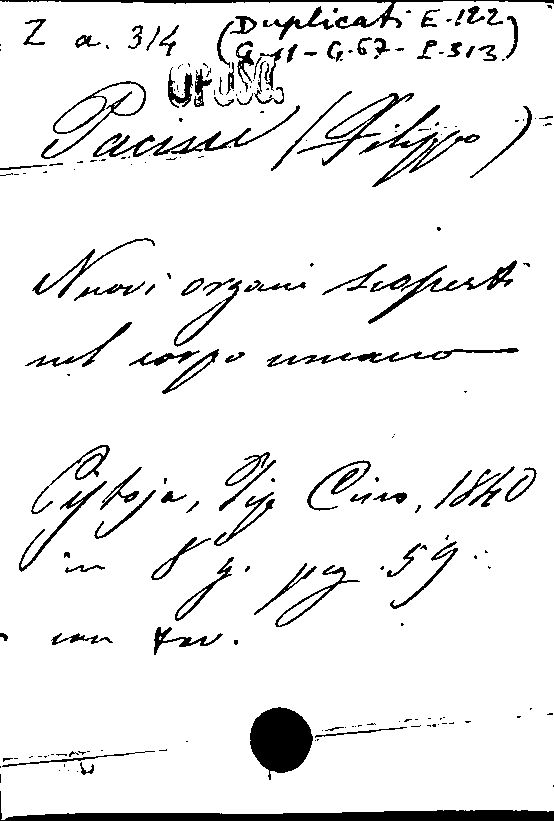 Z a. 314 (Duplicati E-122
G-11-G-67-L-313)
OPUSC.
Pacini (Filippo)
Nuovi organi scoperti
nel corpo umano
Pistoja, Tip. Cino, 1840
in 8º g. pag. 59.
con tav.